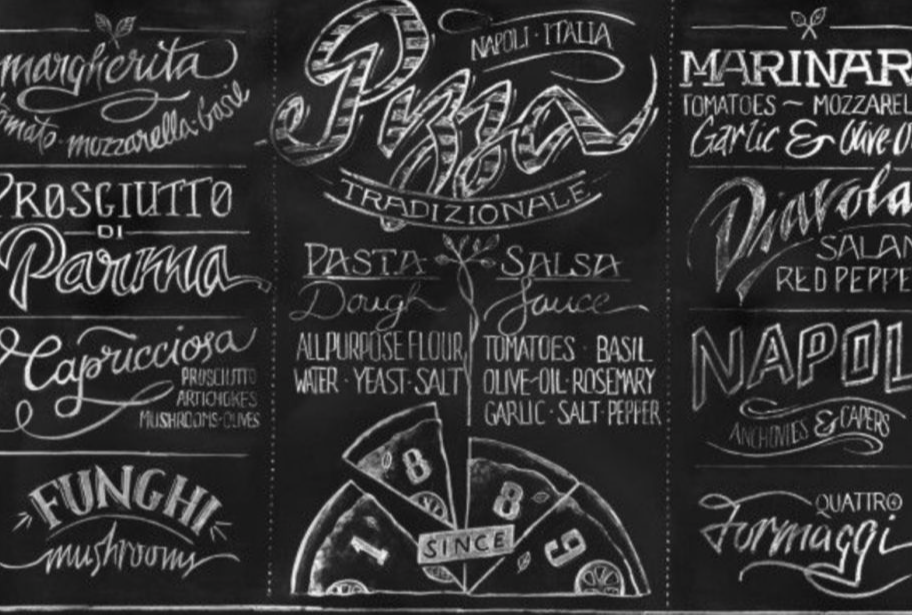 margherita
tomato · mozzarella · basil
PROSCIUTTO
DI
Parma
Capricciosa
PROSCIUTTO
ARTICHOKES
MUSHROOMS · OLIVES
FUNGHI
mushrooms
Pizza
NAPOLI · ITALIA
TRADIZIONALE
PASTA
Dough
ALL PURPOSE FLOUR
WATER · YEAST · SALT
SALSA
Sauce
TOMATOES · BASIL
OLIVE-OIL · ROSEMARY
GARLIC · SALT · PEPPER
1 8 8 9
SINCE
MARINAR
TOMATOES ~ MOZZAREL
Garlic & Olive O
Diavola
SALAM
RED PEPPE
NAPOL
ANCHOVIES & CAPERS
QUATTRO
Formaggi